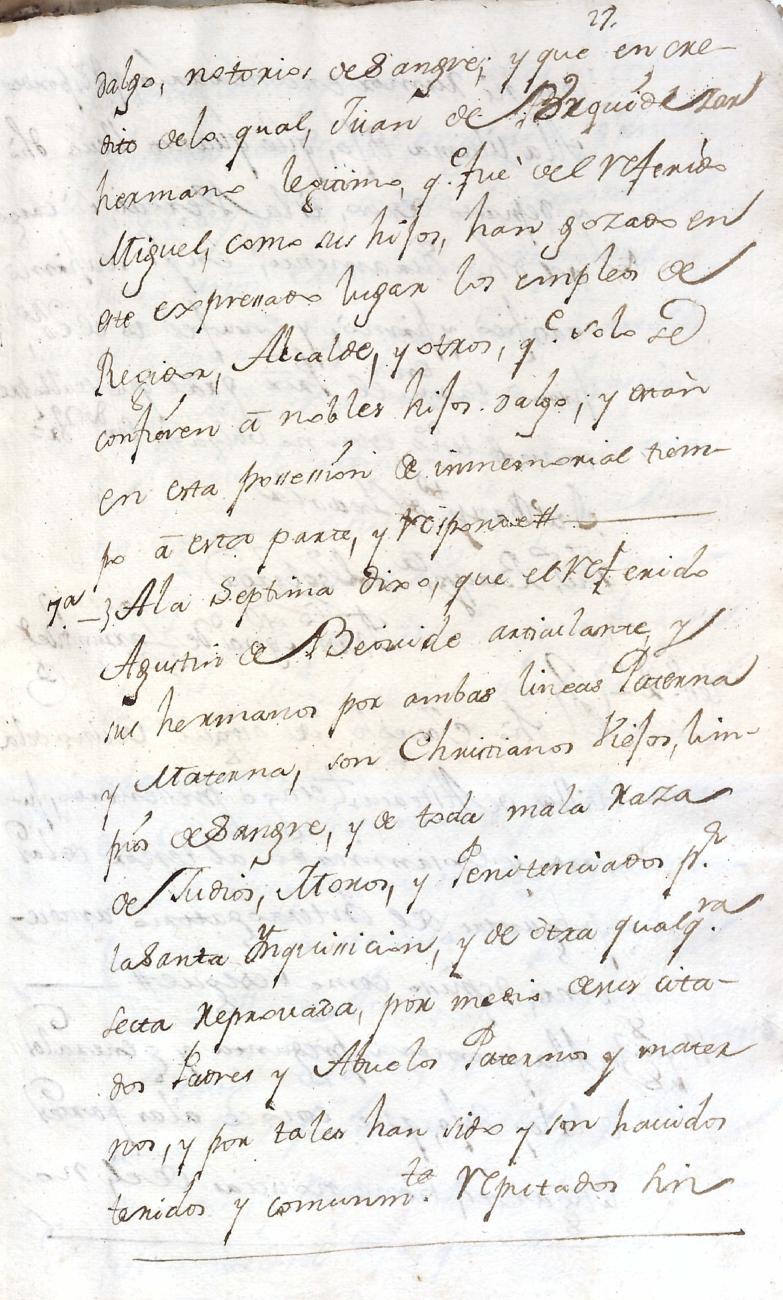 27.
dalgo, notorios de Sangre; y que en cre-
dito delo qual, Juan de Urquidi Zar
hermano legitimo, q.e fuè del referido
Miguel, como sus hijos, han gozado en
este expressado lugar los empleos de
Regidor, Alcalde, y otros, q.e solo se
confieren à nobles hijos dalgo; y están
en esta possessión de inmemorial tiem-
po à esta parte, y responde #
7a Ala Septima dixo, que el referido
Agustin de Beovide articulante, y
sus hermanos por ambas lineas Paterna
y Materna, son Christianos Viejos, lim-
pios de Sangre, y de toda mala raza
de Judios, Moros, y Penitenciados pr.
la Santa Ynquissicion, y de otra qualq.ra
secta reprovada, por medio de sus cita-
dos Padres y Abuelos Paternos y mater
nos, y por tales han sido y son havidos
tenidos y comunm.te reputados sin